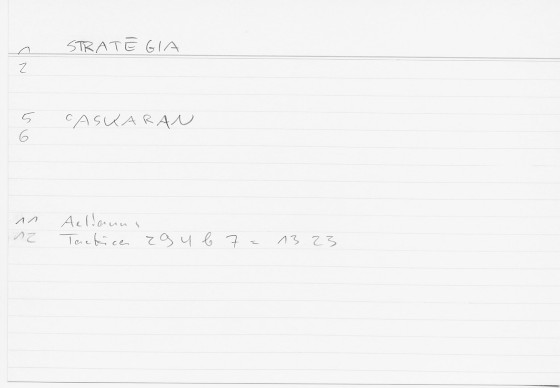 1 STRATĒGIA
2
5 ʿASKARAN
6
11 Aelianus
12 Tactica 294 b 7 = 13 23